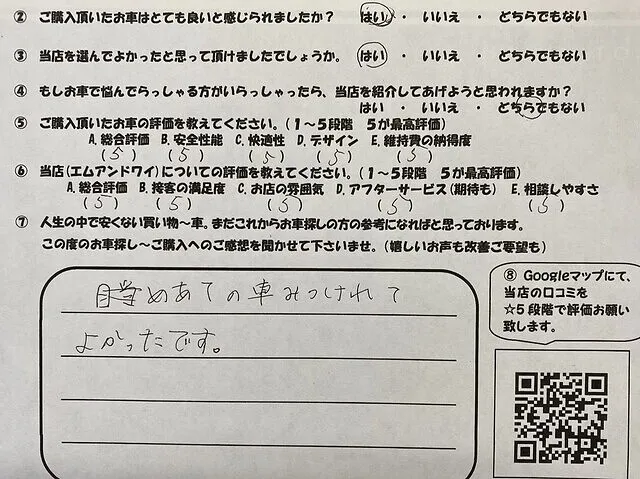 ② ご購入頂いたお車はとても良いと感じられましたか? はい ・ いいえ ・ どちらでもない
③ 当店を選んでよかったと思って頂けましたでしょうか。 はい ・ いいえ ・ どちらでもない
④ もしお車で悩んでらっしゃる方がいらっしゃったら、当店を紹介してあげようと思われますか?
はい ・ いいえ ・ どちらでもない
⑤ ご購入頂いたお車の評価を教えてください。(1~5段階 5が最高評価)
A. 総合評価 B. 安全性能 C. 快適性 D. デザイン E. 維持費の納得度
(5) (5) (5) (5) (5)
⑥ 当店(エムアンドワイ)についての評価を教えてください。(1~5段階 5が最高評価)
A. 総合評価 B. 接客の満足度 C. お店の雰囲気 D. アフターサービス(期待も) E. 相談しやすさ
(5) (5) (5) (5) (5)
⑦ 人生の中で安くない買い物~車。まだこれからお車探しの方の参考になればと思っております。
この度のお車探し~ご購入へのご感想を聞かせて下さいませ。(嬉しいお声も改善ご要望も)
めあての車みつけれて
よかったです。
⑧ Googleマップにて、
当店の口コミを
☆5段階で評価お願い
致します。